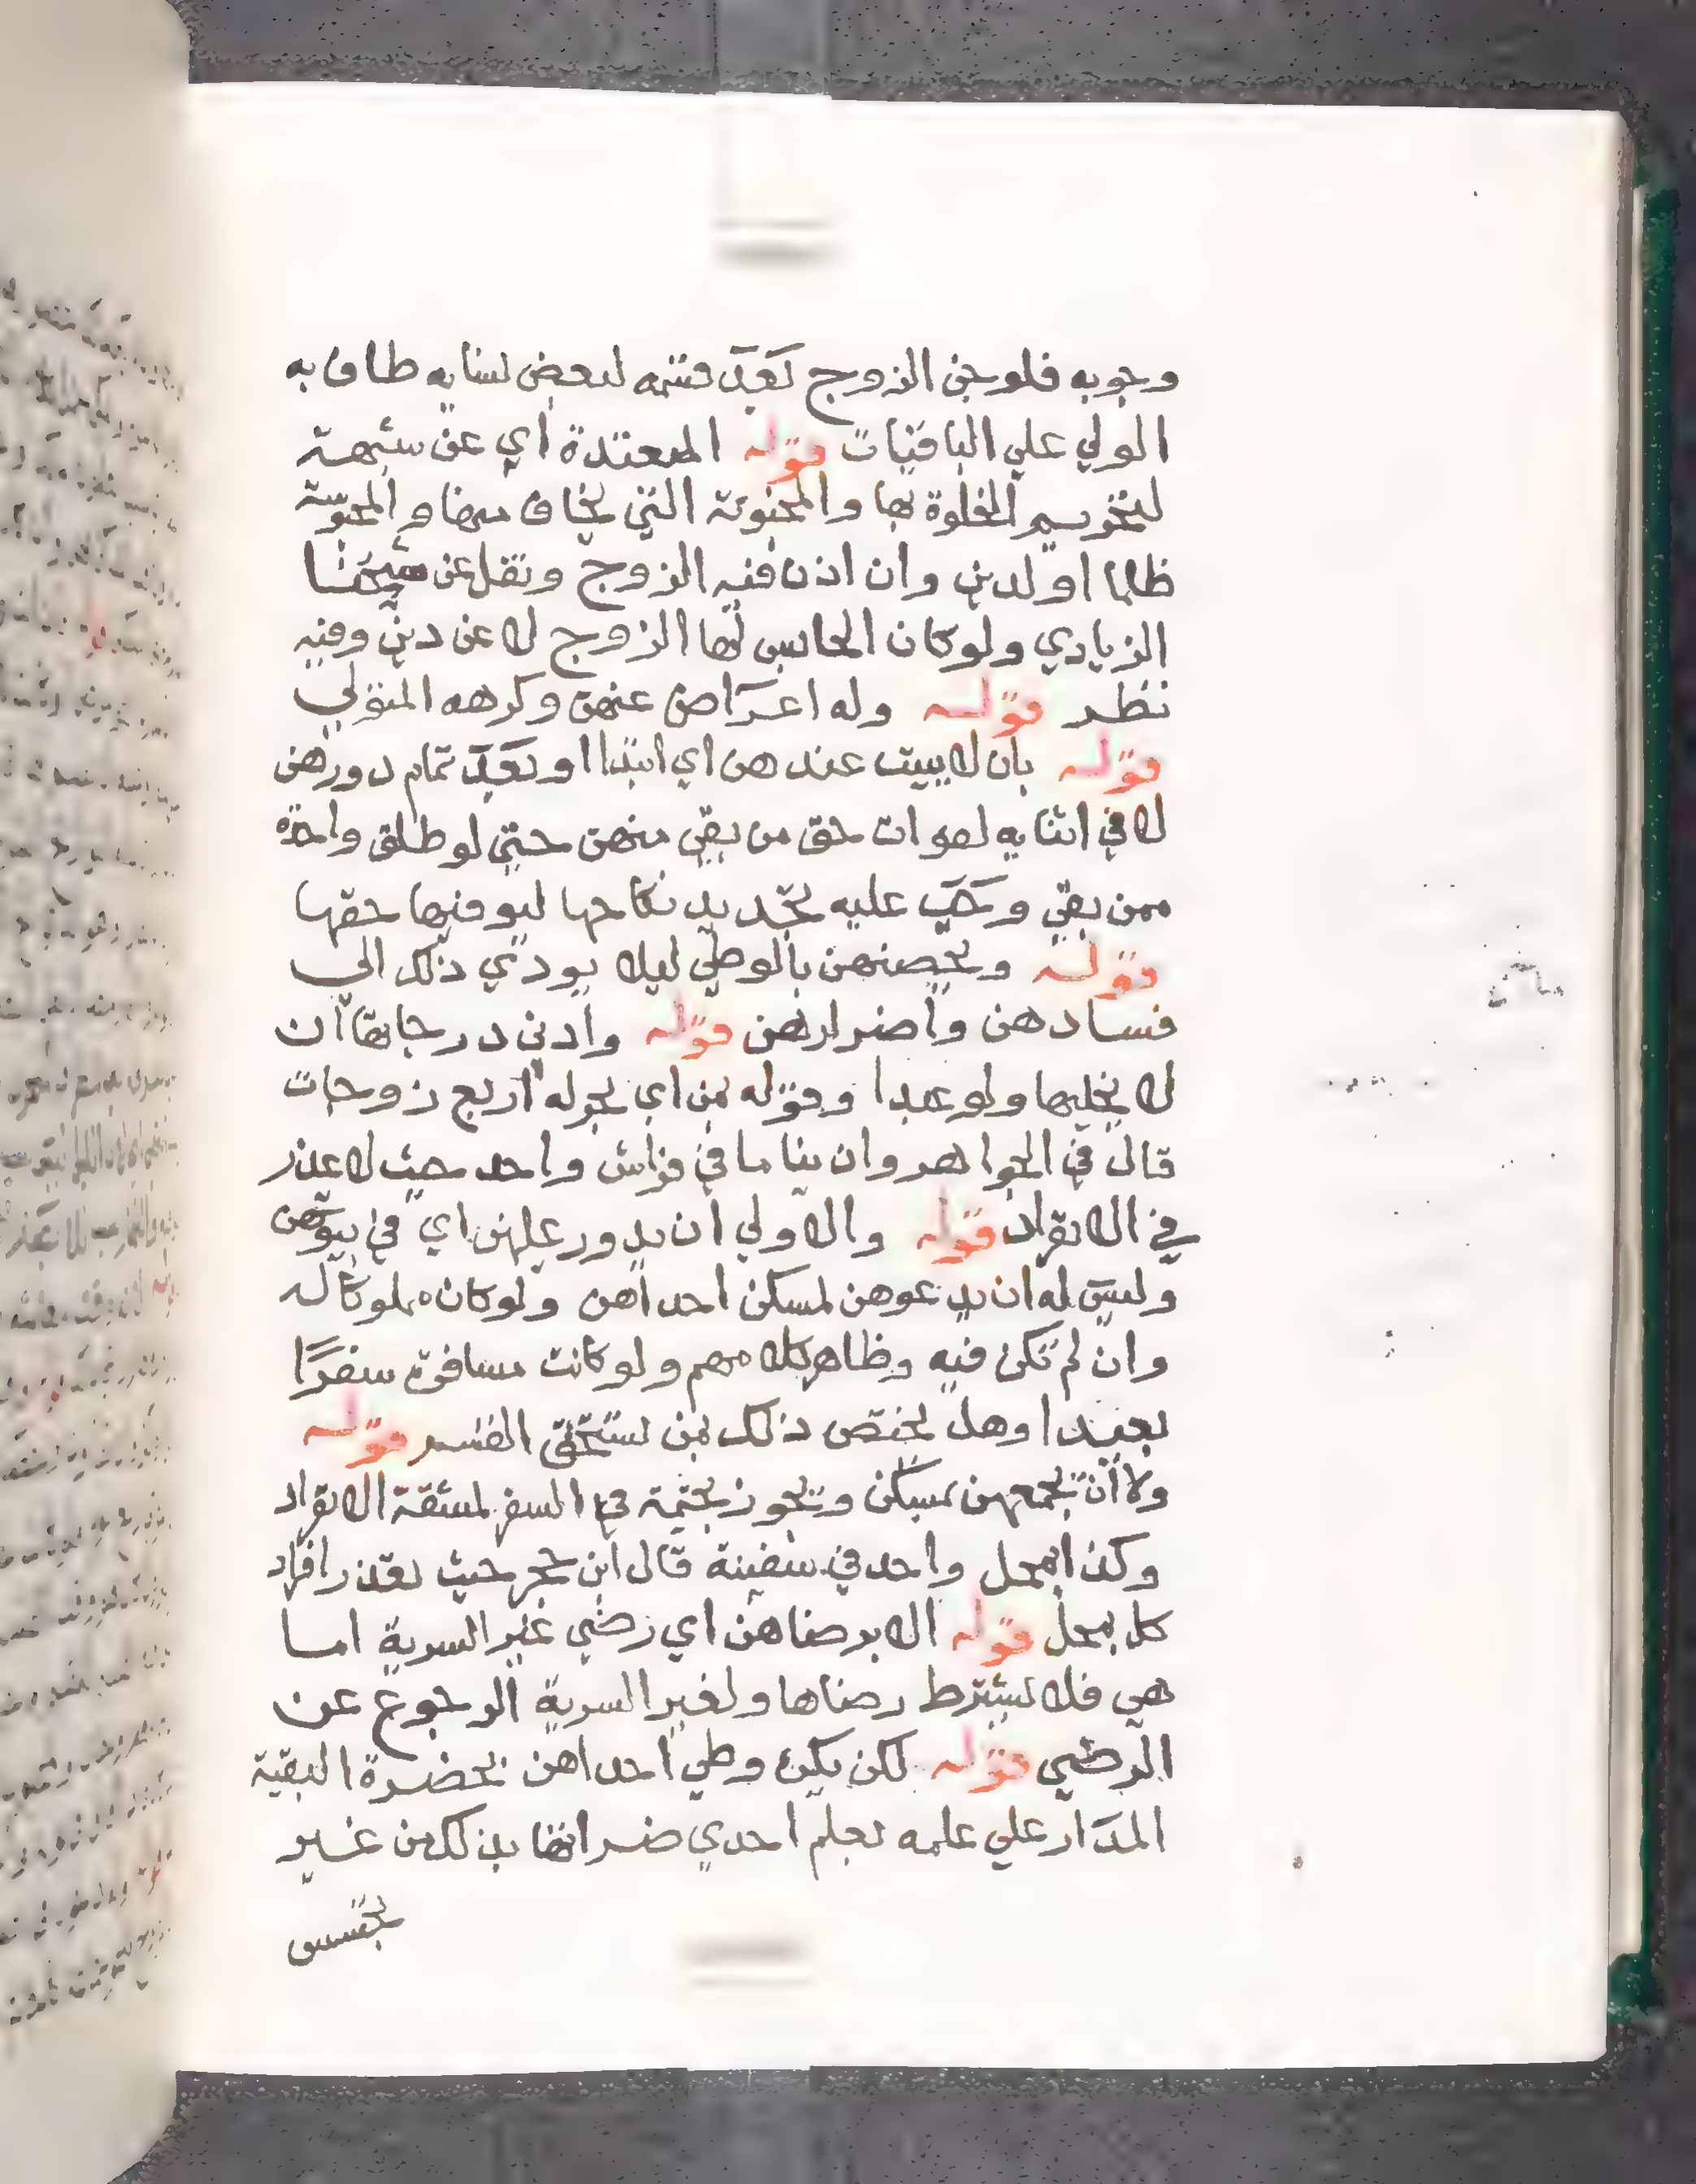 وجوبه فلو جن الزوج بعد قسمه لبعض نسايه طاف به
الولي علي الباقيات قوله المعتدة اي عن شبهة
لتحريم الخلوة بها والمجنونة التي يخاف منها والمحبوسة
ظلما او لدين وان اذن فيه الزوج ونقل عن شيخنا
الزيادي ولو كان الحابس لها الزوج لا عن دين وفيه
نظر قوله وله اعراض عنهن وكرهه المتولي
قوله بان لا يبيت عندهن اي ابتدا او بعد تمام دورهن
لا في اثنايه لفوات حق من بقي منهن حتي لو طلق واحدة
ممن بقي وجب عليه تجديد نكاحها ليوفيها حقها
قوله ويحصنهن بالوطي ليلا يودي ذلك الي
فسادهن واضرارهن قوله وادني درجاتها ان
لا يخليها ولو عبدا وقوله من اي حوله اربع زوجات
قال في الجواهر وان يناما في فراش واحد حيث لا عذر
في الانفراد قوله والاولي ان يدور عليهن اي في بيوتهن
وليس له ان يدعوهن لمسكن احداهن ولو كان مملوكا له
وان لم تكن فيه وظاهر كلامهم ولو كانت مسافة سفرا
بعيدا وهل يختص ذلك بمن تستحق القسم قوله
ولا ان يجمعهن بمسكن ويجوز بخيمة في السفر لمشقة الانفراد
وكذا بمحل واحد في سفينة قال ابن حجر حيث تعذر افراد
كل بمحل قوله الا برضاهن اي رضي غير السرية اما
هي فلا يشترط رضاها ولغير السرية الرجوع عن
الرضي قوله لكن يكره وطي احداهن بحضرة البقية
المدار علي علمه بعلم احدي ضراتها بذلك من غير
تجسس